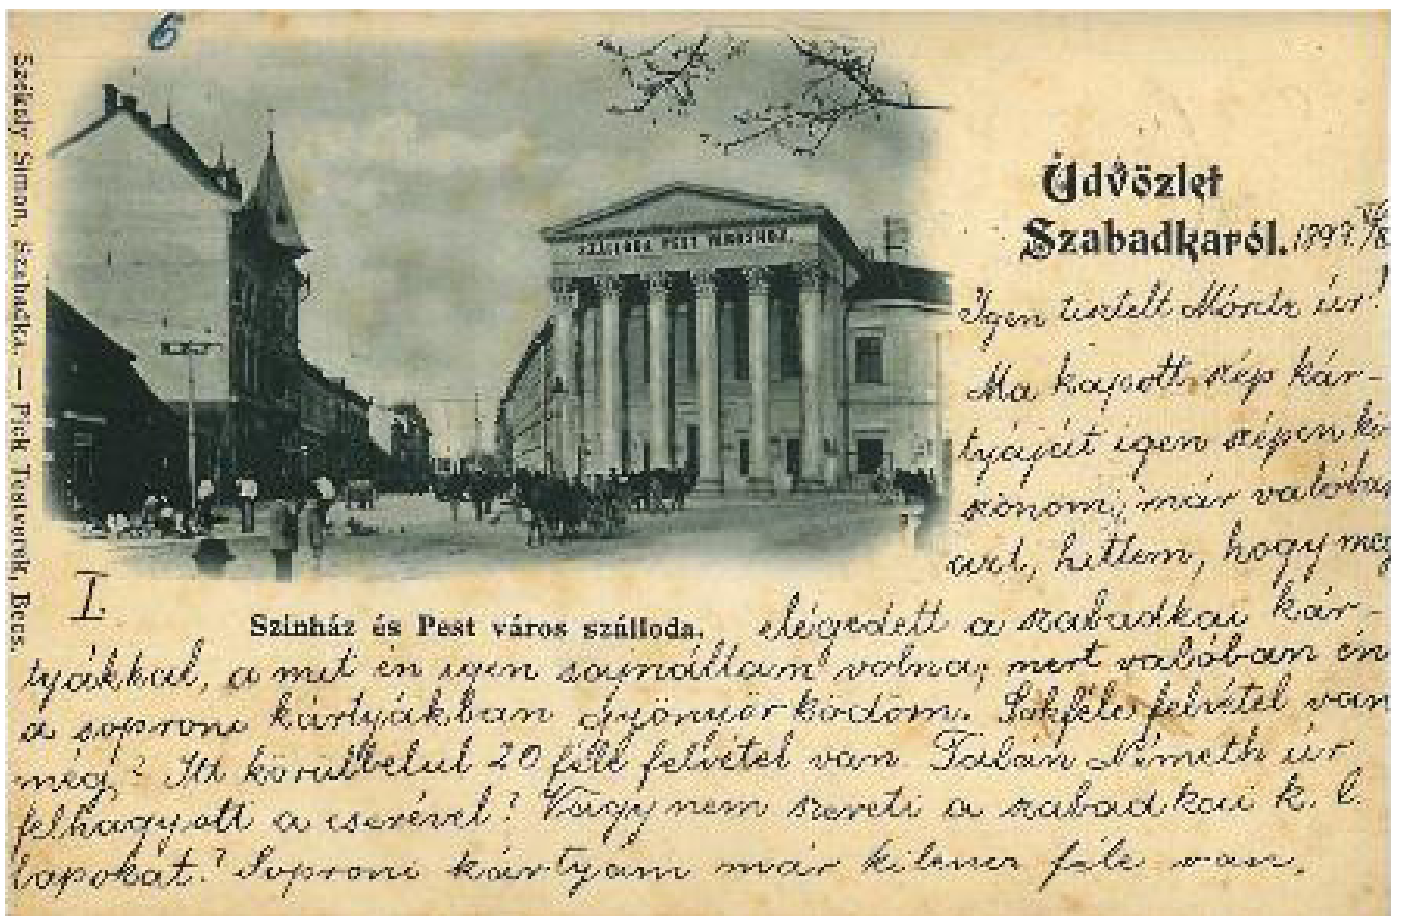 6
Székely Simon, Szabadka. — Pick Testverek, Becs.
SZÁLLODA PEST VÁROSHOZ.
Üdvözlet
Szabadkaról. 1899.
Igen tisztelt Móritz úr!
Ma kapott szép kár-
tyáját igen szépen kö
szönöm, már valóban
azt hittem, hogy meg
I.
Szinház és Pest város szálloda.
elégedett a szabadkai kár-
tyákkal, a mit én igen sajnáltam volna, mert valóban én
a soproni kártyákban gyönyörködöm. Sokféle felvétel van
még? Itt körülbelul 20 féle felvétel van. Talán Németh úr
felhagyott a cserével? Vagy nem szereti a szabadkai k. l.
lapokat? Soproni kártyám már kilencz féle van.